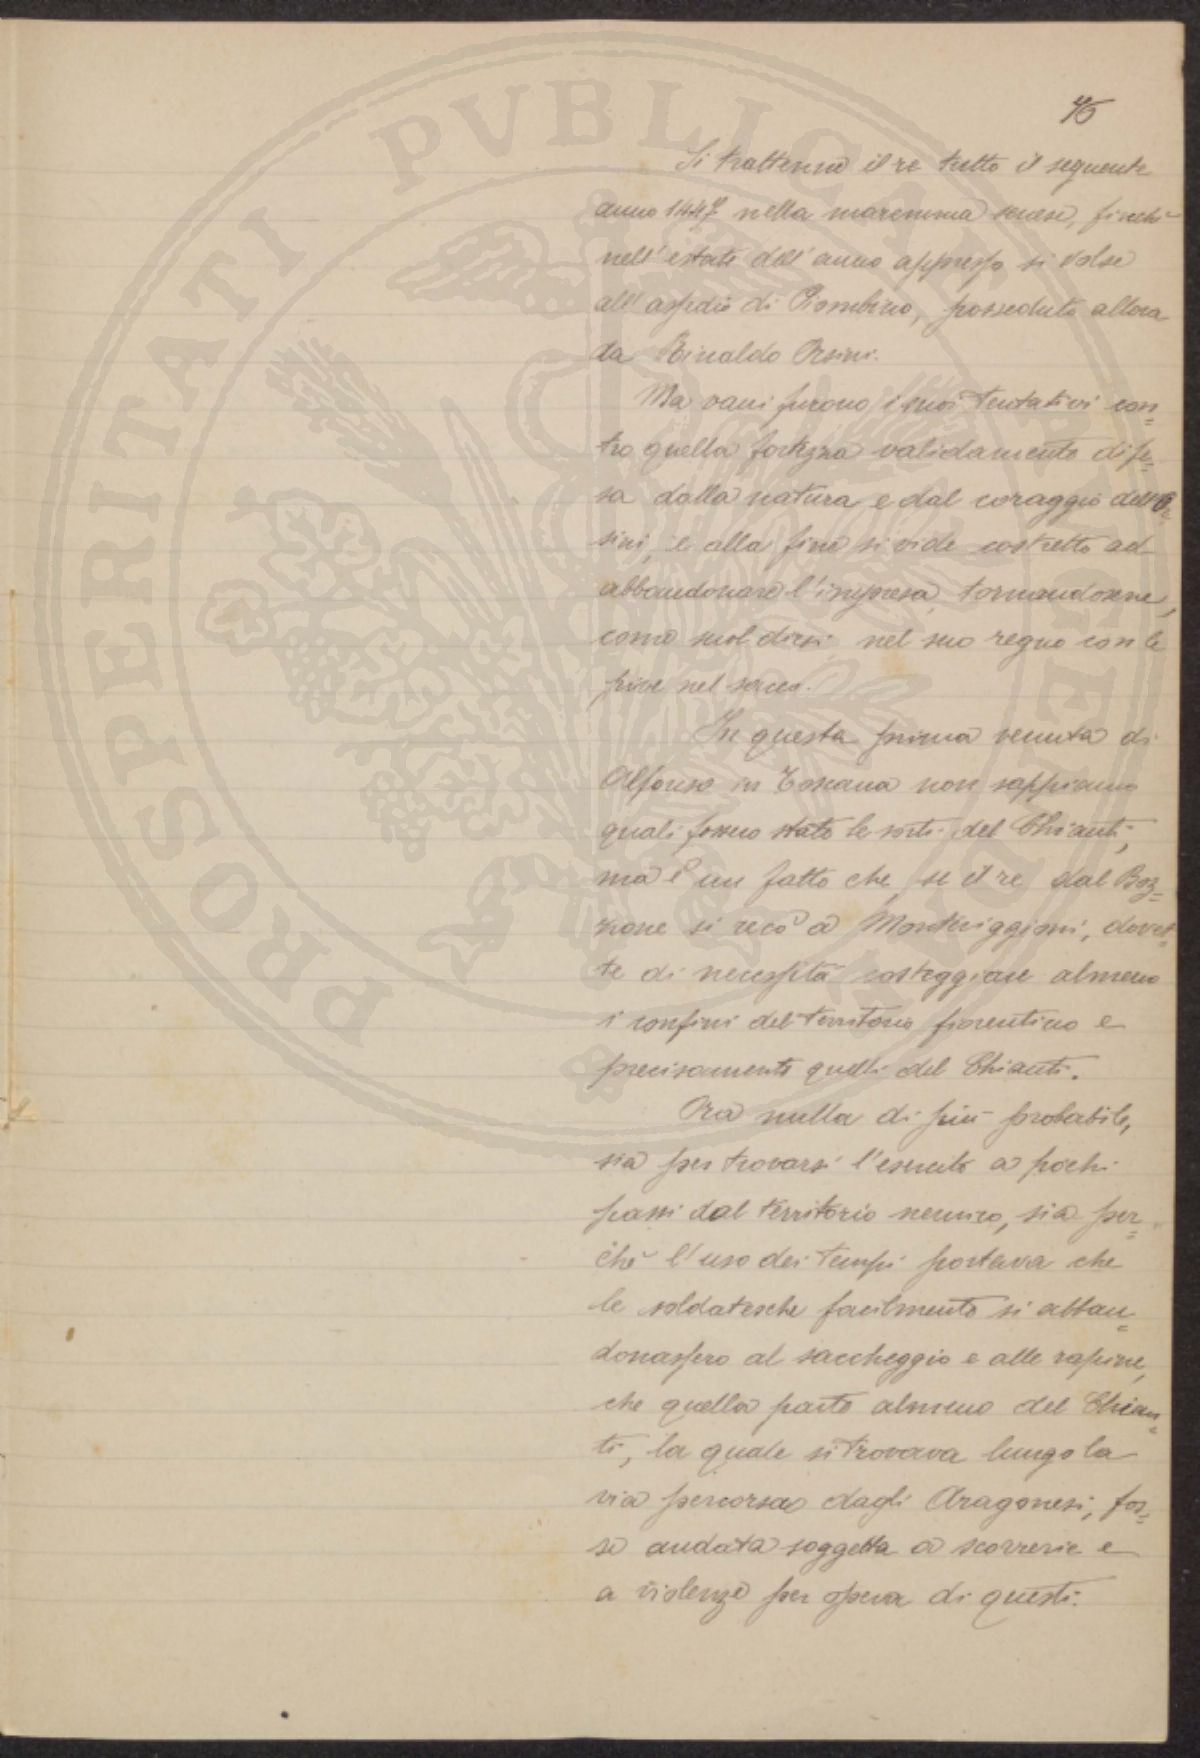 46
Si trattenne il re tutto il seguente
anno 1447 nella maremma senese, finchè
nell'estate dell'anno appresso si volse
all'assedio di Piombino, posseduto allora
da Rinaldo Orsini.
Ma vani furono i suoi tentativi con=
tro quella fortezza validamente dife=
sa dalla natura e dal coraggio dell'Or=
sini, e alla fine si vide costretto ad
abbandonare l'impresa, tornandosene,
come suol dirsi nel suo regno con le
pive nel sacco.
In questa prima venuta di
Alfonso in Toscana non sappiamo
quali fossero state le sorti del Chianti,
ma è un fatto che, se il re dal Boz=
zone si recò a Monteriggioni, dovet=
te di necessità costeggiare almeno
i confini del territorio fiorentino e
precisamente quelli del Chianti.
Ora nulla di più probabile,
sia per trovarsi l'esercito a pochi
passi dal territorio nemico, sia per=
chè l'uso dei tempi portava che
le soldatesche facilmente si abban=
donassero al saccheggio e alle rapine,
che quella parte almeno del Chian=
ti, la quale si trovava lungo la
via percorsa dagli Aragonesi, fos=
se andata soggetta a scorrerie e
a violenze per opera di questi.
PROSPERITATI PVBLICAE AVGENDAE